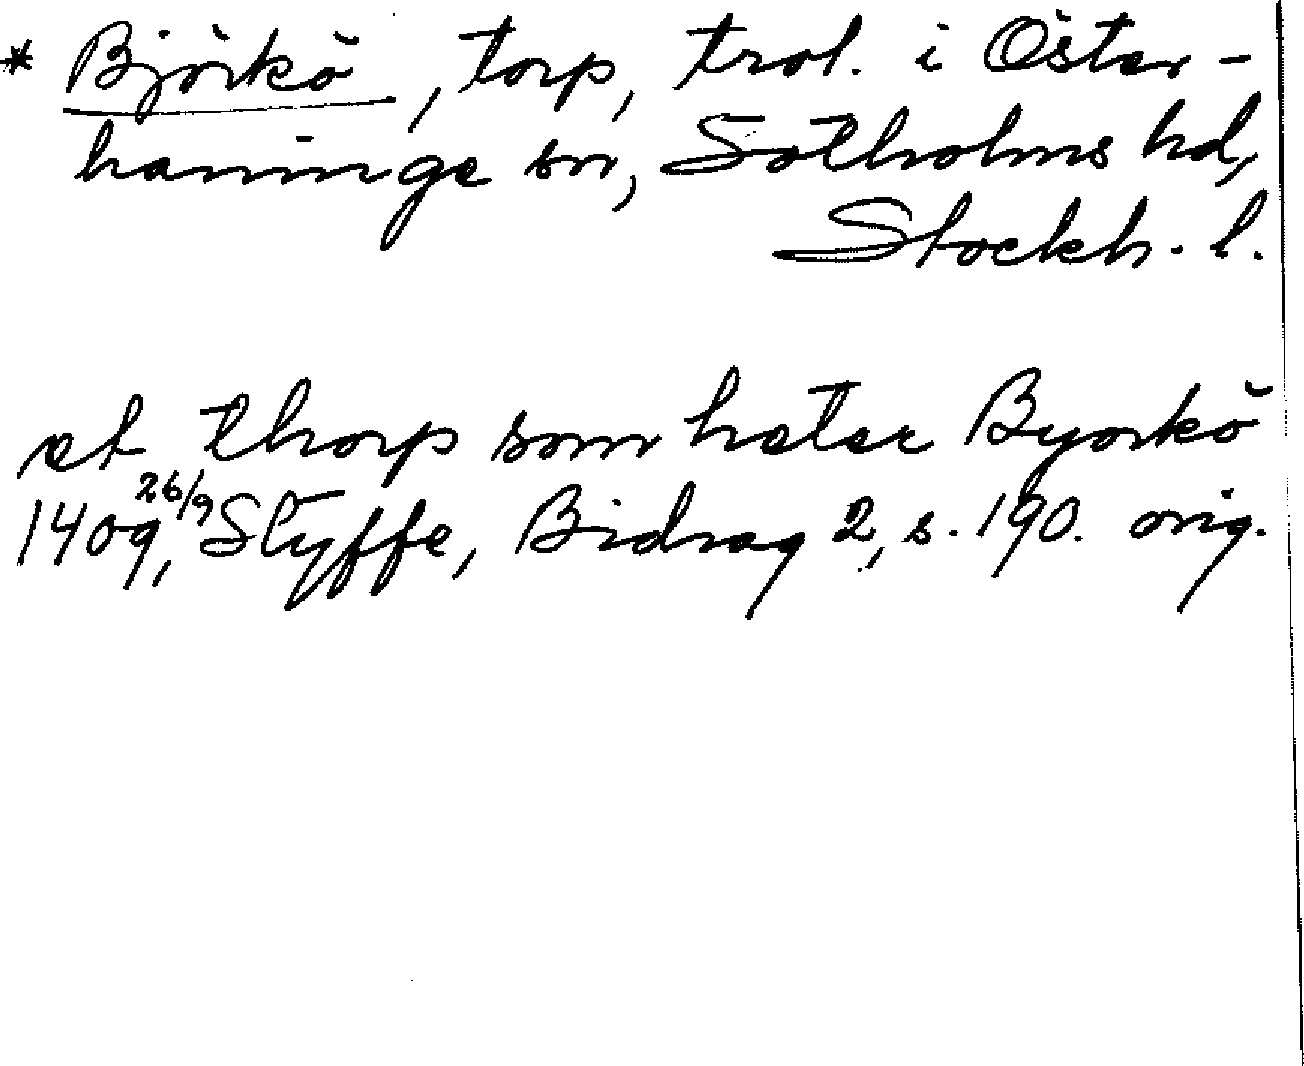 * Björkö, torp, trol. i Öster-
haninge sn, Sotholms hd,
Stockh. l.
et thorp som heter Byorkö
1409 26/9, Styffe, Bidrag 2, s. 190. orig.